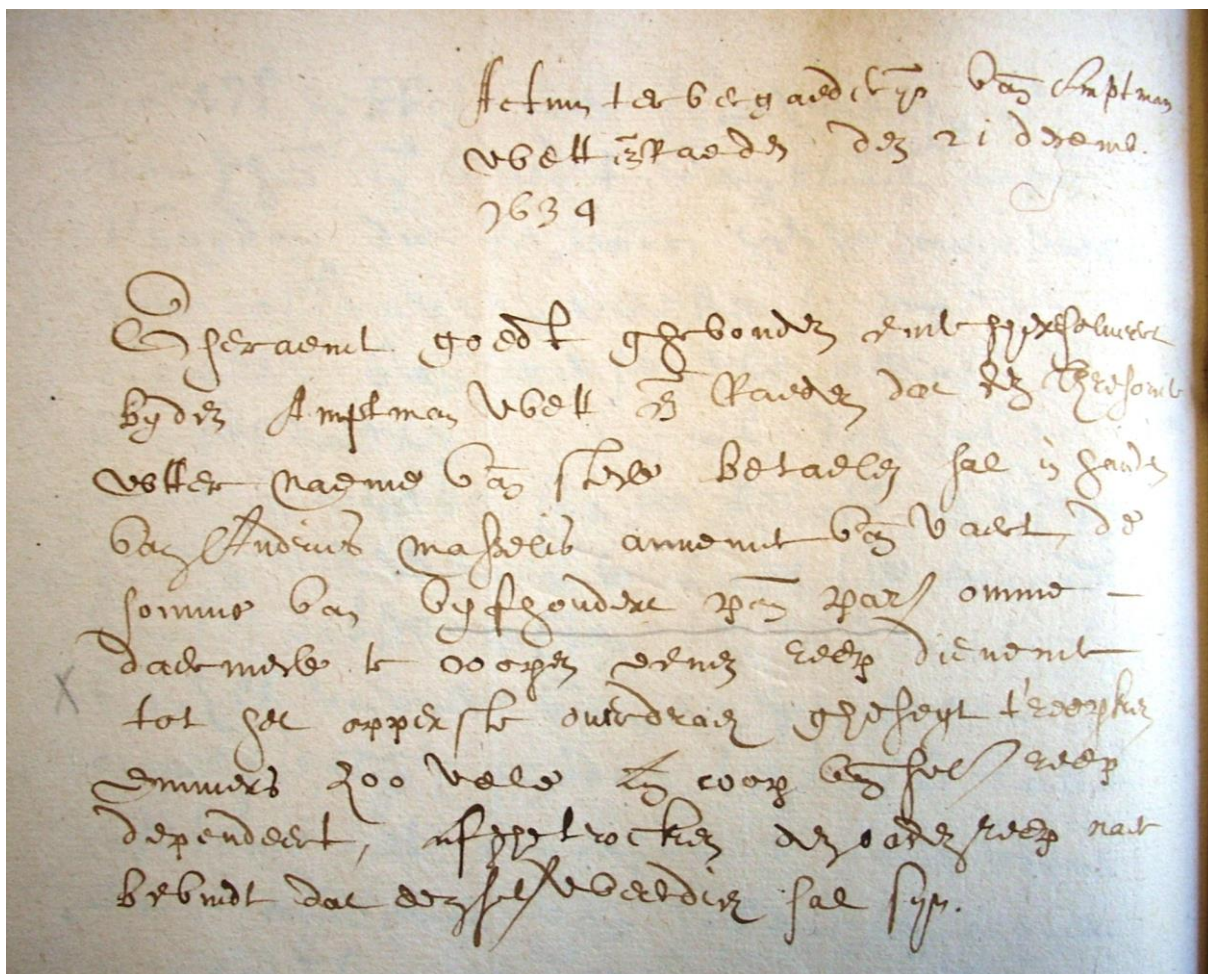 Actum ter vergaederynge van Amptman
Wett en Raeden den 21 decemb.
1634
Gheraemt goedt ghevonden ende gheresolveert
byden Amptman Wett en Raeden dat den thresorier
uutter naeme van stede betaelen sal in handen
van Andries masselis van Vaert, de
somme van vyfhondert pon par omme
daermede te coopen eenen reep dienende
tot het opperste overdrach gheseyt t'reepken
emmers zoo vele den coop van sel reep
dependeert, afghetrocken den ouden reep naer
bevindt dat den sel weerdich sal syn.